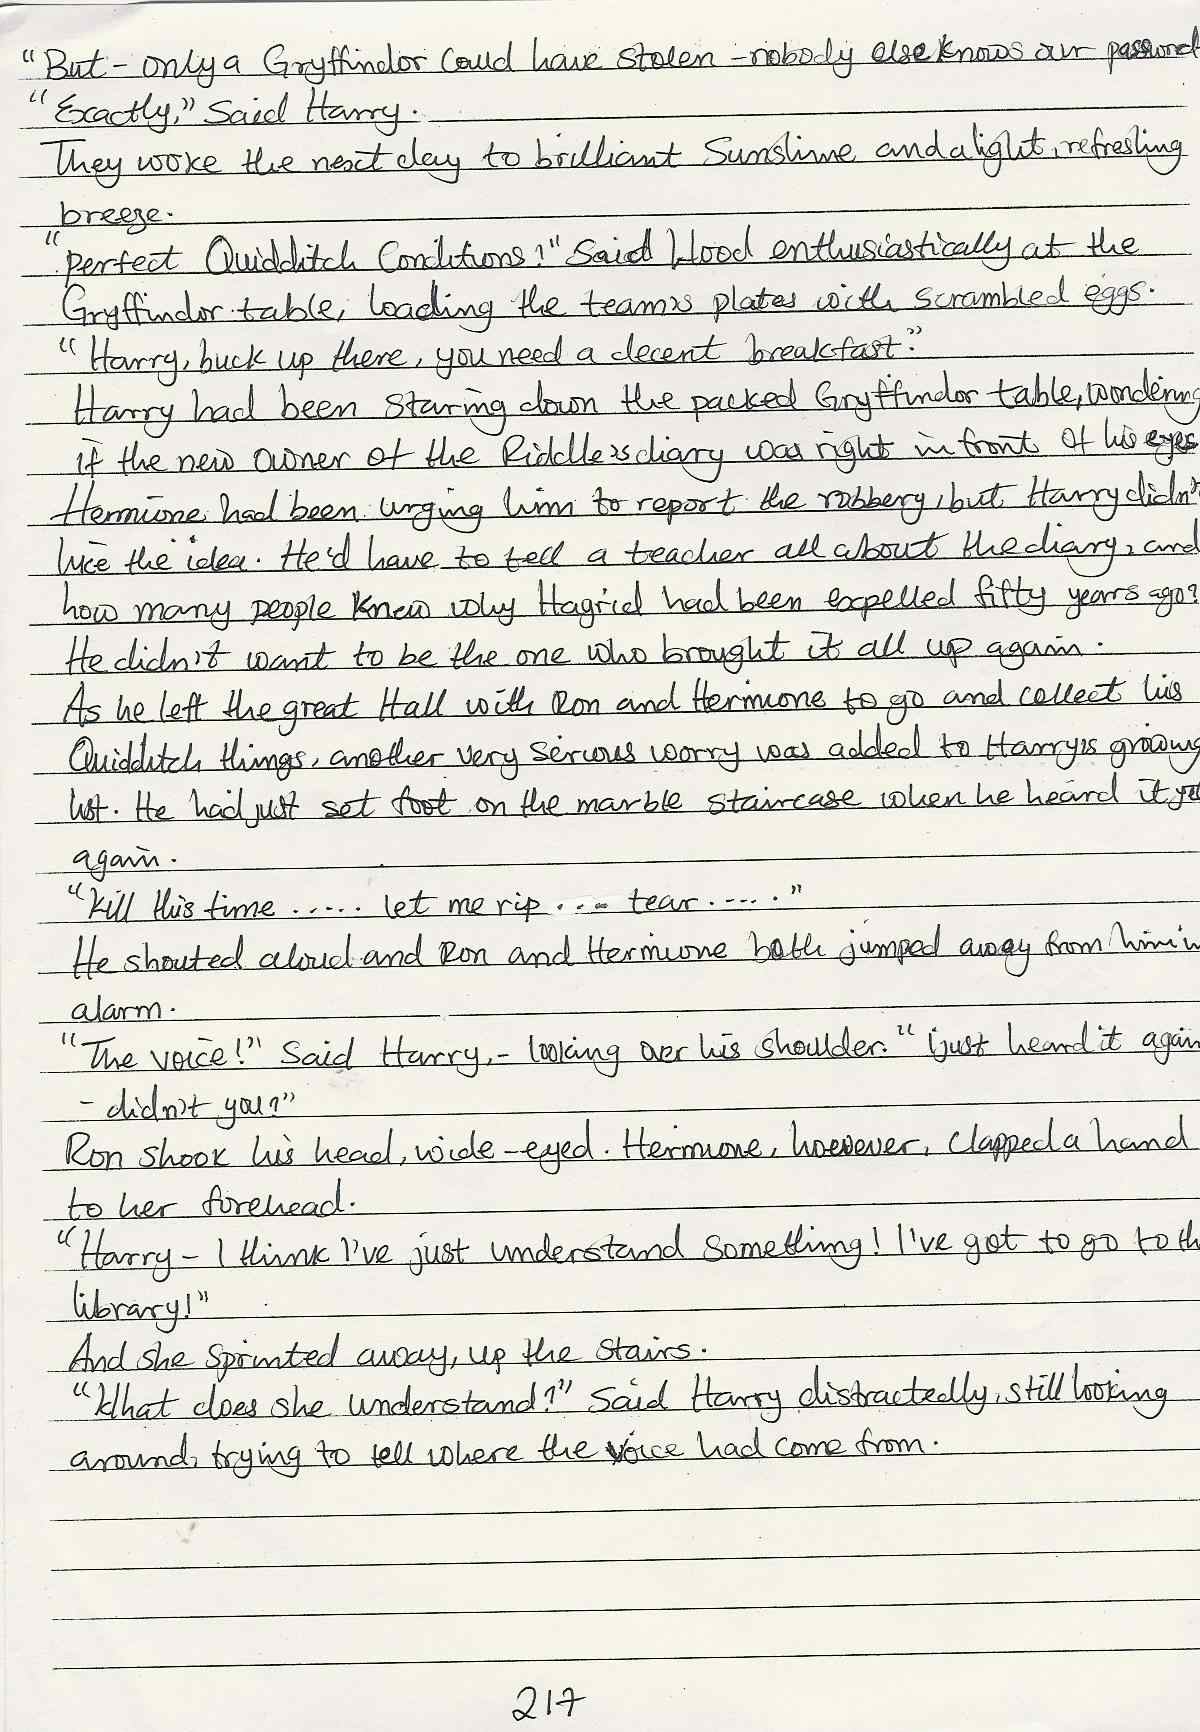 "But - only a Gryffindor Could have stolen - nobody else knows our password
"Exactly," Said Harry.
They woke the next day to brilliant Sunshine and a light, refreshing
breeze.
"perfect Quidditch Conditions!" Said Wood enthusiastically at the
Gryffindor table, loading the team's plates with scrambled eggs.
"Harry, buck up there, you need a decent breakfast."
Harry had been staring down the packed Gryffindor table, wondering
if the new owner of the Riddle's diary was right in front of his eyes
Hermione had been urging him to report the robbery, but Harry didn't
like the idea. He'd have to tell a teacher all about the diary, and
how many people knew why Hagrid had been expelled fifty years ago?
He didn't want to be the one who brought it all up again.
As he left the great Hall with Ron and Hermione to go and collect his
Quidditch things, another very serious worry was added to Harry's growing
list. He had just set foot on the marble staircase when he heard it yet
again.
"Kill this time ..... let me rip .... tear ....."
He shouted aloud and Ron and Hermione both jumped away from him in
alarm.
"The voice!" Said Harry, - looking over his shoulder. "i just heard it again
- didn't you?"
Ron shook his head, wide-eyed. Hermione, however, clapped a hand
to her forehead.
"Harry - I think I've just understand something! I've got to go to th
library!"
And she sprinted away, up the stairs.
"What does she understand?" Said Harry distractedly, still looking
around, trying to tell where the voice had come from.
217